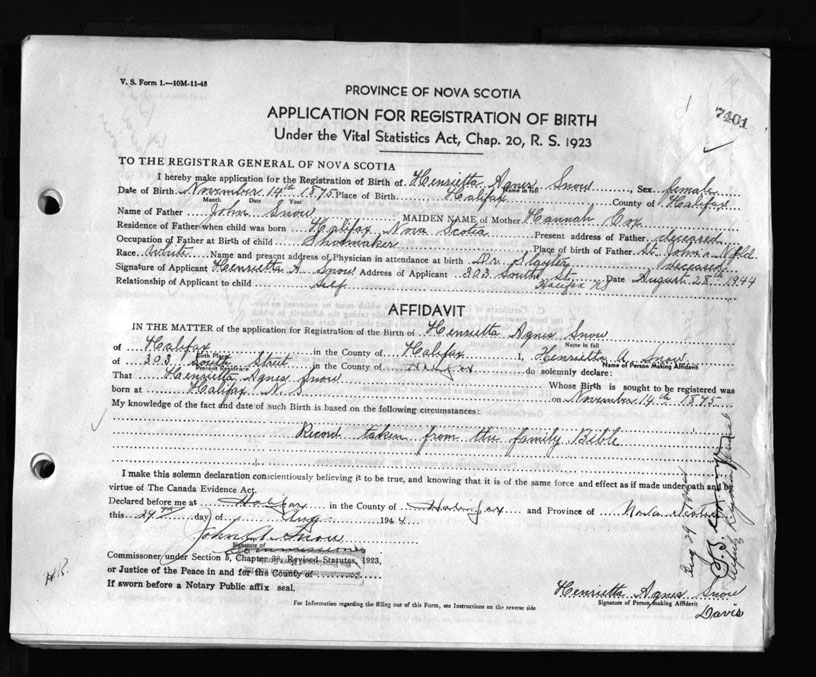 V. S. Form 1.—10M-11-43
PROVINCE OF NOVA SCOTIA
7401
APPLICATION FOR REGISTRATION OF BIRTH
Under the Vital Statistics Act, Chap. 20, R. S. 1923
TO THE REGISTRAR GENERAL OF NOVA SCOTIA
I hereby make application for the Registration of Birth of Henrietta Agnes Snow, Sex female
Date of Birth November 14th 1875 Place of Birth Halifax County of Halifax
Month Date Year
Name of Father John Snow MAIDEN NAME of Mother Hannah Cox
Residence of Father when child was born Halifax Nova Scotia Present address of Father deceased
Occupation of Father at Birth of child Shoemaker Place of birth of Father St. John's Nfld.
Race White Name and present address of Physician in attendance at birth Dr. Slayter deceased
Signature of Applicant Henrietta A. Snow Address of Applicant 303 South St. Date August 28th 1944
Relationship of Applicant to child self Halifax NS
AFFIDAVIT
IN THE MATTER of the application for Registration of the Birth of Henrietta Agnes Snow
Name in full
of Halifax in the County of Halifax I, Henrietta A. Snow
Birth Place Name of Person Making Affidavit
of 303 South Street in the County of Halifax do solemnly declare:
Present Residence
That Henrietta Agnes Snow Whose Birth is sought to be registered was
born at Halifax N. S. on November 14th 1875
My knowledge of the fact and date of such Birth is based on the following circumstances:
Record taken from the family Bible
I make this solemn declaration conscientiously believing it to be true, and knowing that it is of the same force and effect as if made under oath and by
virtue of The Canada Evidence Act.
Declared before me at Halifax in the County of Halifax and Province of Nova Scotia
this 29th day of Aug 1944
Signature of
Commissioner
Commissioner under Section 5, Chapter 38, Revised Statutes, 1923,
or Justice of the Peace in and for the County of
If sworn before a Notary Public affix seal.
H.R.
Henrietta Agnes Snow
Signature of Person making Affidavit
Davis
For Information regarding the filling out of this Form, see Instructions on the reverse side